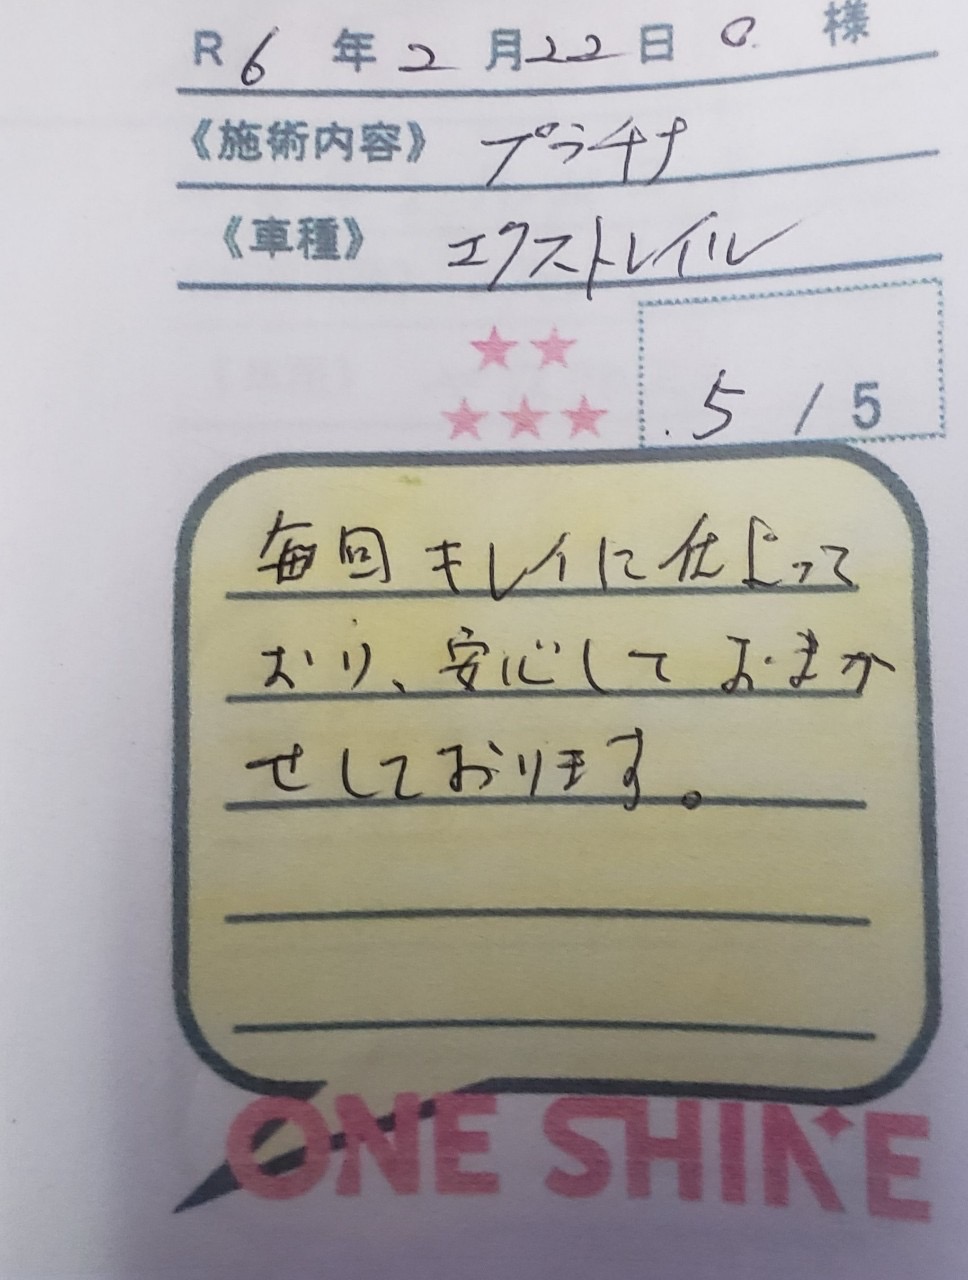 R6年2月22日 O.様
《施術内容》 プラチナ
《車種》 エクストレイル
★★
★★★ 5 / 5
毎回キレイに仕上って
おり、安心しておまか
せしております。
ONE SHINE